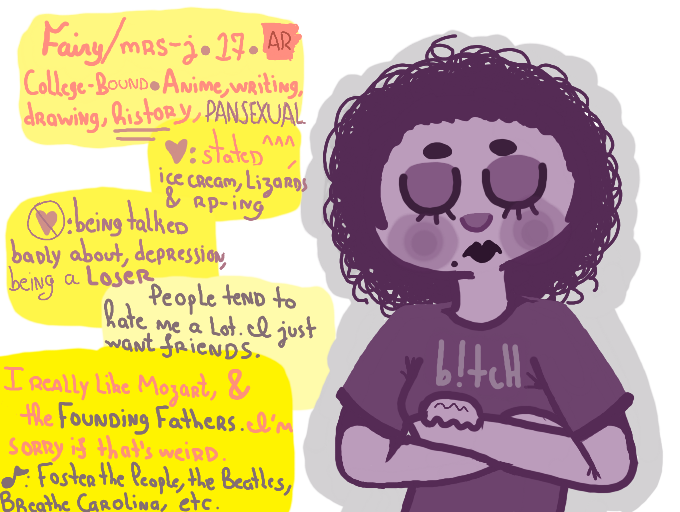 Fairy/mrs-j • 17 • AR
College-Bound • Anime, writing,
drawing, History, PANSEXUAL
♥: stated ^^^
ice cream, Lizards
& rp-ing
♥: being talked
badly about, depression,
being a Loser
People tend to
hate me a lot. I just
want friends.
I really like Mozart, &
the Founding Fathers. I'm
sorry if that's weird.
♪: Foster the People, the Beatles,
Breathe Carolina, etc.
b!tcH